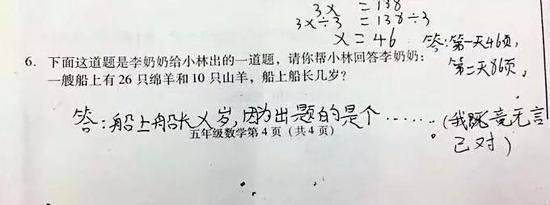 3x = 138
3x÷3 = 138÷3
x = 46
答:第一天46页,
第二天86页。
6. 下面这道题是李奶奶给小林出的一道题,请你帮小林回答李奶奶:
一艘船上有 26 只绵羊和 10 只山羊,船上船长几岁?
答:船上船长x岁,因为出题的是个……(我既竟无言
已对)
五年级数学第 4 页(共 4 页)